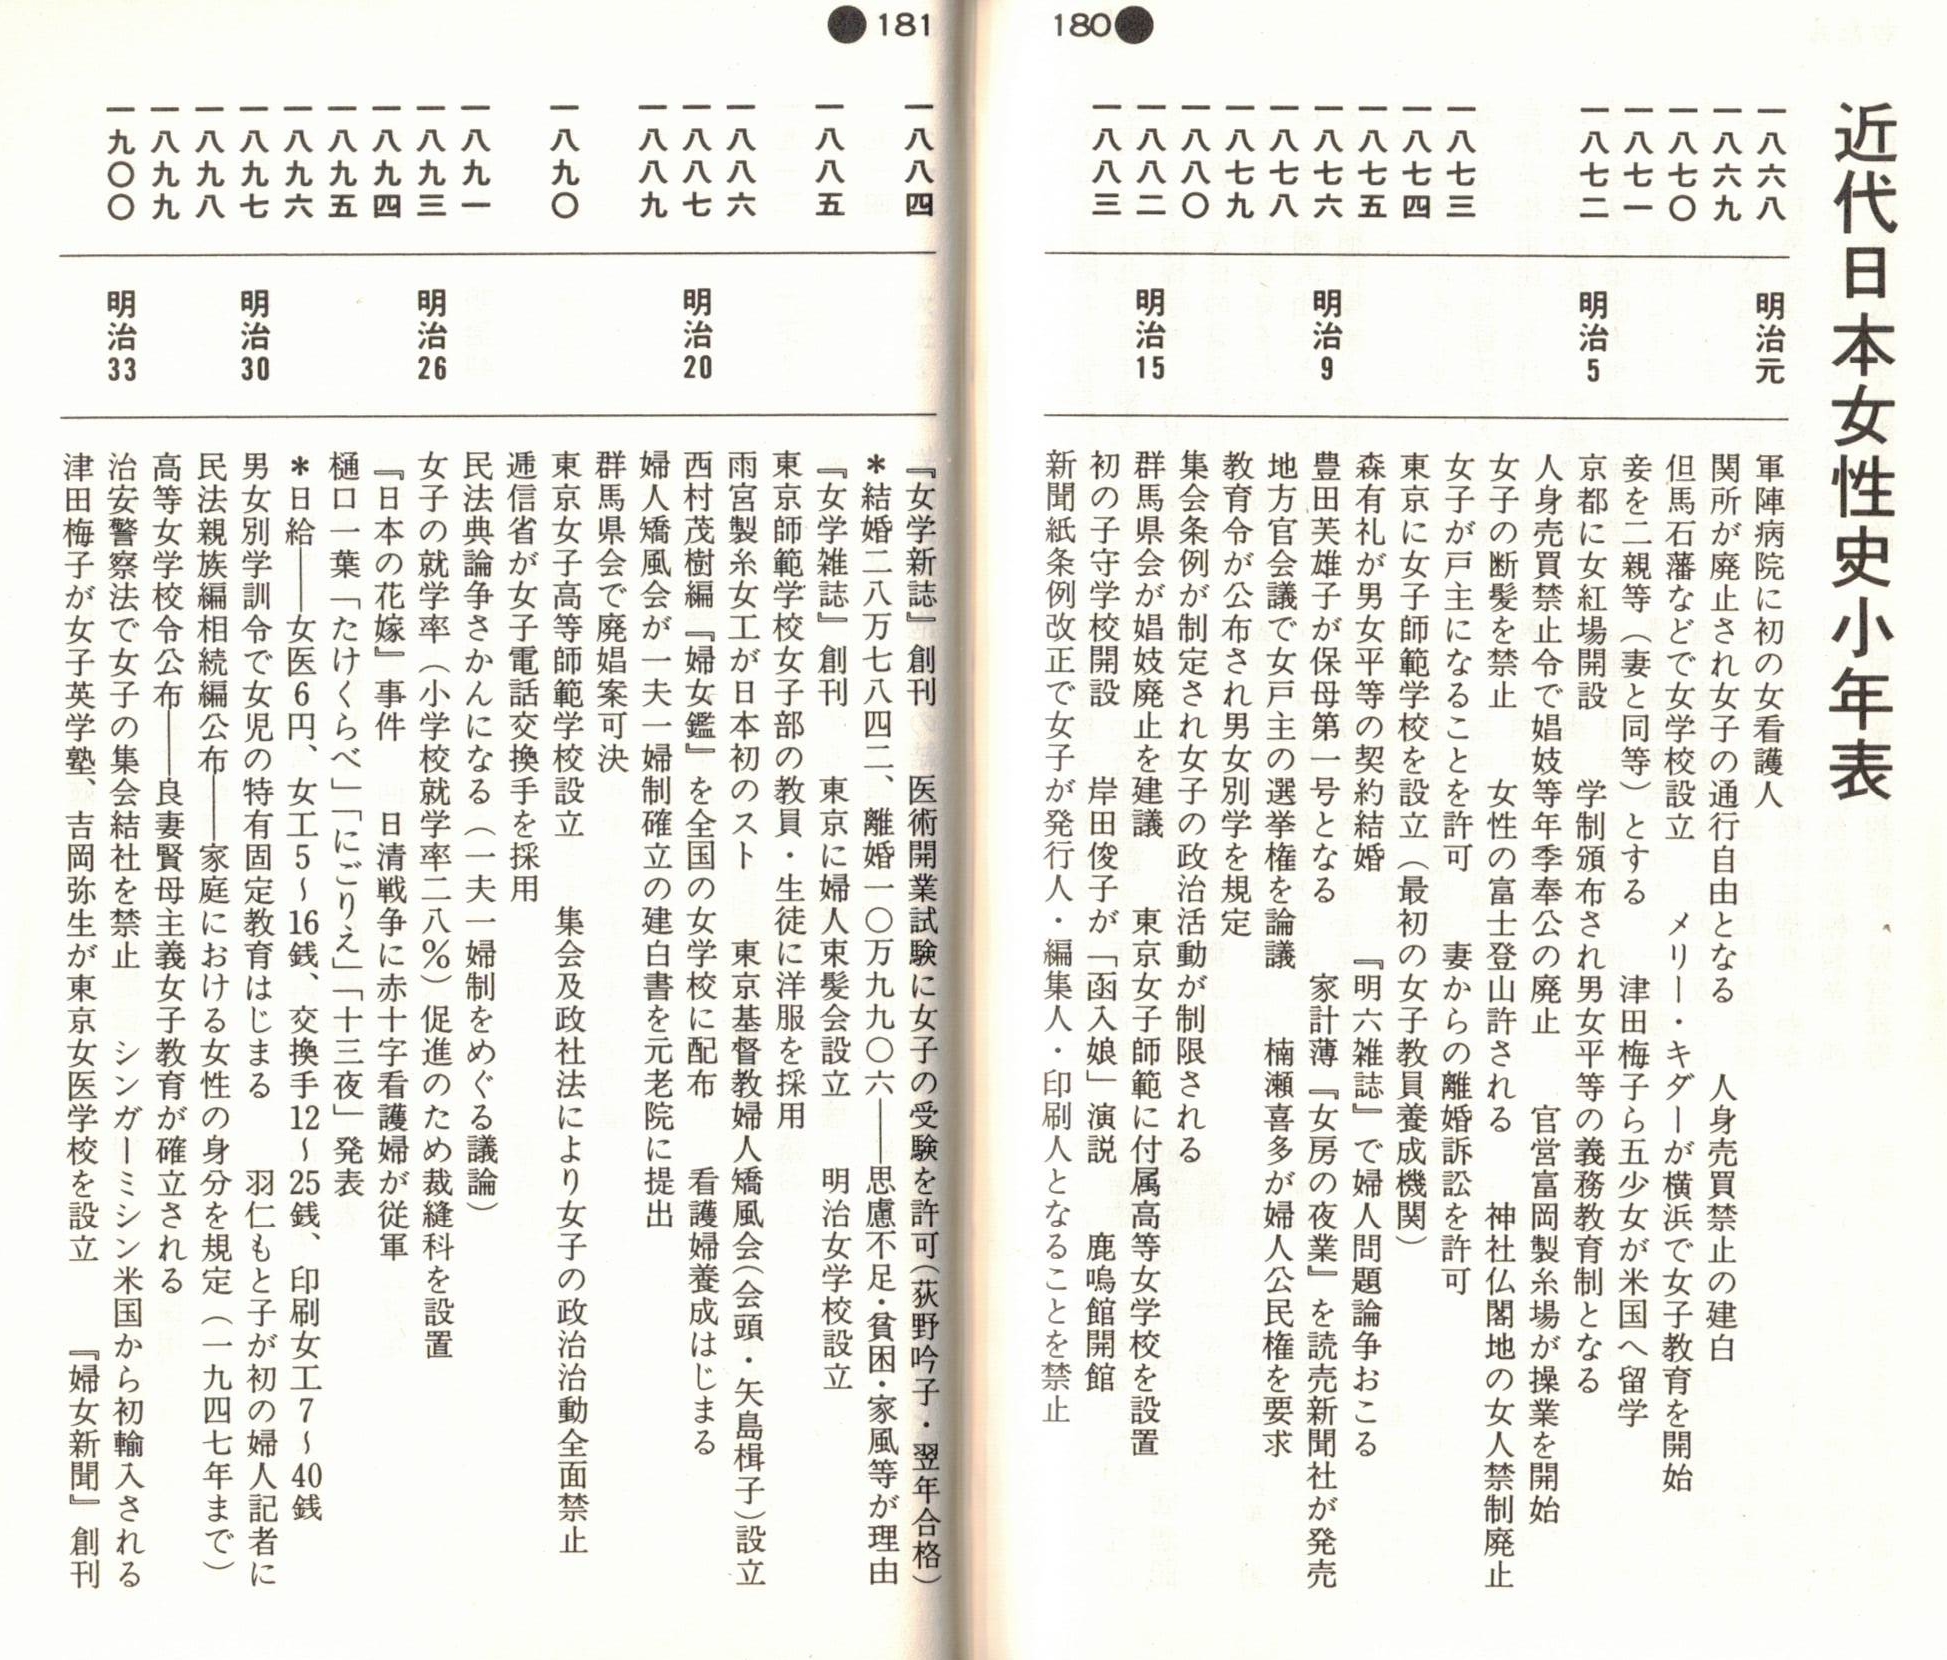 180
近代日本女性史小年表
一八六八 明治元 軍陣病院に初の女看護人
一八六九 関所が廃止され女子の通行自由となる 人身売買禁止の建白
一八七〇 但馬石藩などで女学校設立 メリー・キダーが横浜で女子教育を開始
一八七一 妾を二親等（妻と同等）とする 津田梅子ら五少女が米国へ留学
一八七二 明治5 京都に女紅場開設 学制頒布され男女平等の義務教育制となる
人身売買禁止令で娼妓等年季奉公の廃止 官営富岡製糸場が操業を開始
女子の断髪を禁止 女性の富士登山許される 神社仏閣地の女人禁制廃止
一八七三 女子が戸主になることを許可 妻からの離婚訴訟を許可
一八七四 東京に女子師範学校を設立（最初の女子教員養成機関）
一八七五 森有礼が男女平等の契約結婚 『明六雑誌』で婦人問題論争おこる
一八七六 明治9 豊田芙雄子が保母第一号となる 家計薄『女房の夜業』を読売新聞社が発売
一八七八 地方官会議で女戸主の選挙権を論議 楠瀬喜多が婦人公民権を要求
一八七九 教育令が公布され男女別学を規定
一八八〇 集会条例が制定され女子の政治活動が制限される
一八八二 明治15 群馬県会が娼妓廃止を建議 東京女子師範に付属高等女学校を設置
一八八三 初の子守学校開設 岸田俊子が「函入娘」演説 鹿鳴館開館
新聞紙条例改正で女子が発行人・編集人・印刷人となることを禁止
181
一八八四 『女学新誌』創刊 医術開業試験に女子の受験を許可（荻野吟子・翌年合格）
＊結婚二八万七八四二、離婚一〇万九九〇六――思慮不足・貧困・家風等が理由
一八八五 『女学雑誌』創刊 東京に婦人束髪会設立 明治女学校設立
東京師範学校女子部の教員・生徒に洋服を採用
一八八六 雨宮製糸女工が日本初のスト 東京基督教婦人矯風会（会頭・矢島楫子）設立
一八八七 明治20 西村茂樹編『婦女鑑』を全国の女学校に配布 看護婦養成はじまる
一八八九 婦人矯風会が一夫一婦制確立の建白書を元老院に提出
群馬県会で廃娼案可決
一八九〇 東京女子高等師範学校設立 集会及政社法により女子の政治治動全面禁止
逓信省が女子電話交換手を採用
一八九一 民法典論争さかんになる（一夫一婦制をめぐる議論）
一八九三 明治26 女子の就学率（小学校就学率二八％）促進のため裁縫科を設置
一八九四 『日本の花嫁』事件 日清戦争に赤十字看護婦が従軍
一八九五 樋口一葉「たけくらべ」「にごりえ」「十三夜」発表
一八九六 ＊日給――女医6円、女工5～16銭、交換手12～25銭、印刷女工7～40銭
一八九七 明治30 男女別学訓令で女児の特有固定教育はじまる 羽仁もと子が初の婦人記者に
一八九八 民法親族編相続編公布――家庭における女性の身分を規定（一九四七年まで）
一八九九 高等女学校令公布――良妻賢母主義女子教育が確立される
一九〇〇 明治33 治安警察法で女子の集会結社を禁止 シンガーミシン米国から初輸入される
津田梅子が女子英学塾、吉岡弥生が東京女医学校を設立 『婦女新聞』創刊